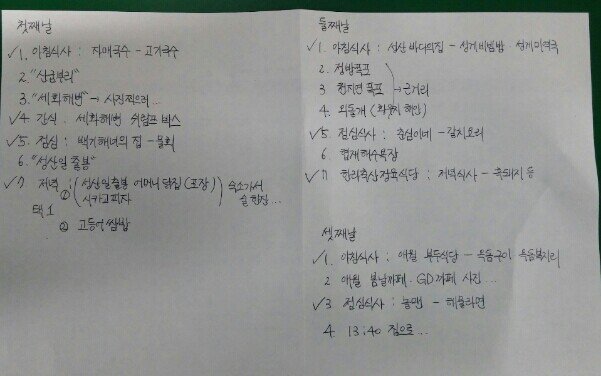 첫째날
✓1. 아침식사 : 자매국수 - 고기국수
2. "산굼부리"
3. "세화해변" → 사진찍으러...
✓4. 간식 : 세화해변 쉬림프 박스
✓5. 점심 : 백기해녀의 집 - 물회
6. "성산일출봉"
✓7. 저녁 : ① 성산일출봉 어머니 닭집 (포장) 시카고피자 숙소가서 술 한잔...
택 1
② 고등어쌈밥
둘째날
✓1. 아침식사 : 성산 바다의집 - 성게비빔밥 · 성게미역국
2. 정방폭포
3. 천지연 폭포 > 근거리
4. 외돌개 (황우지 해안)
✓5. 점심식사 : 춘심이네 - 갈치요리
6 협재해수욕장
✓7. 한라축산정육식당 : 저녁식사 - 흑돼지 등
셋째날
✓1. 아침식사 : 애월 부두식당 -
2 애월 봄날까페 · GD까페 사진...
✓3. 점심식사 : 놀맨 - 해물라면
4. 13:40 집으로...